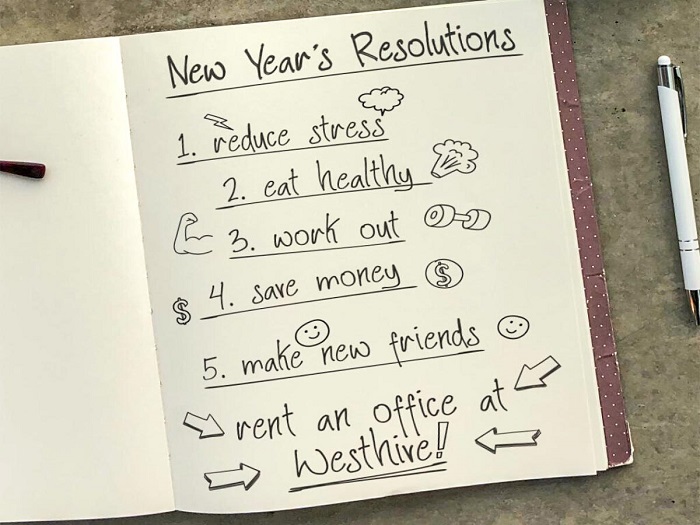 New Year's Resolutions
1. reduce stress
2. eat healthy
3. work out
$ 4. save money $
5. make new friends
rent an office at
Westhive!